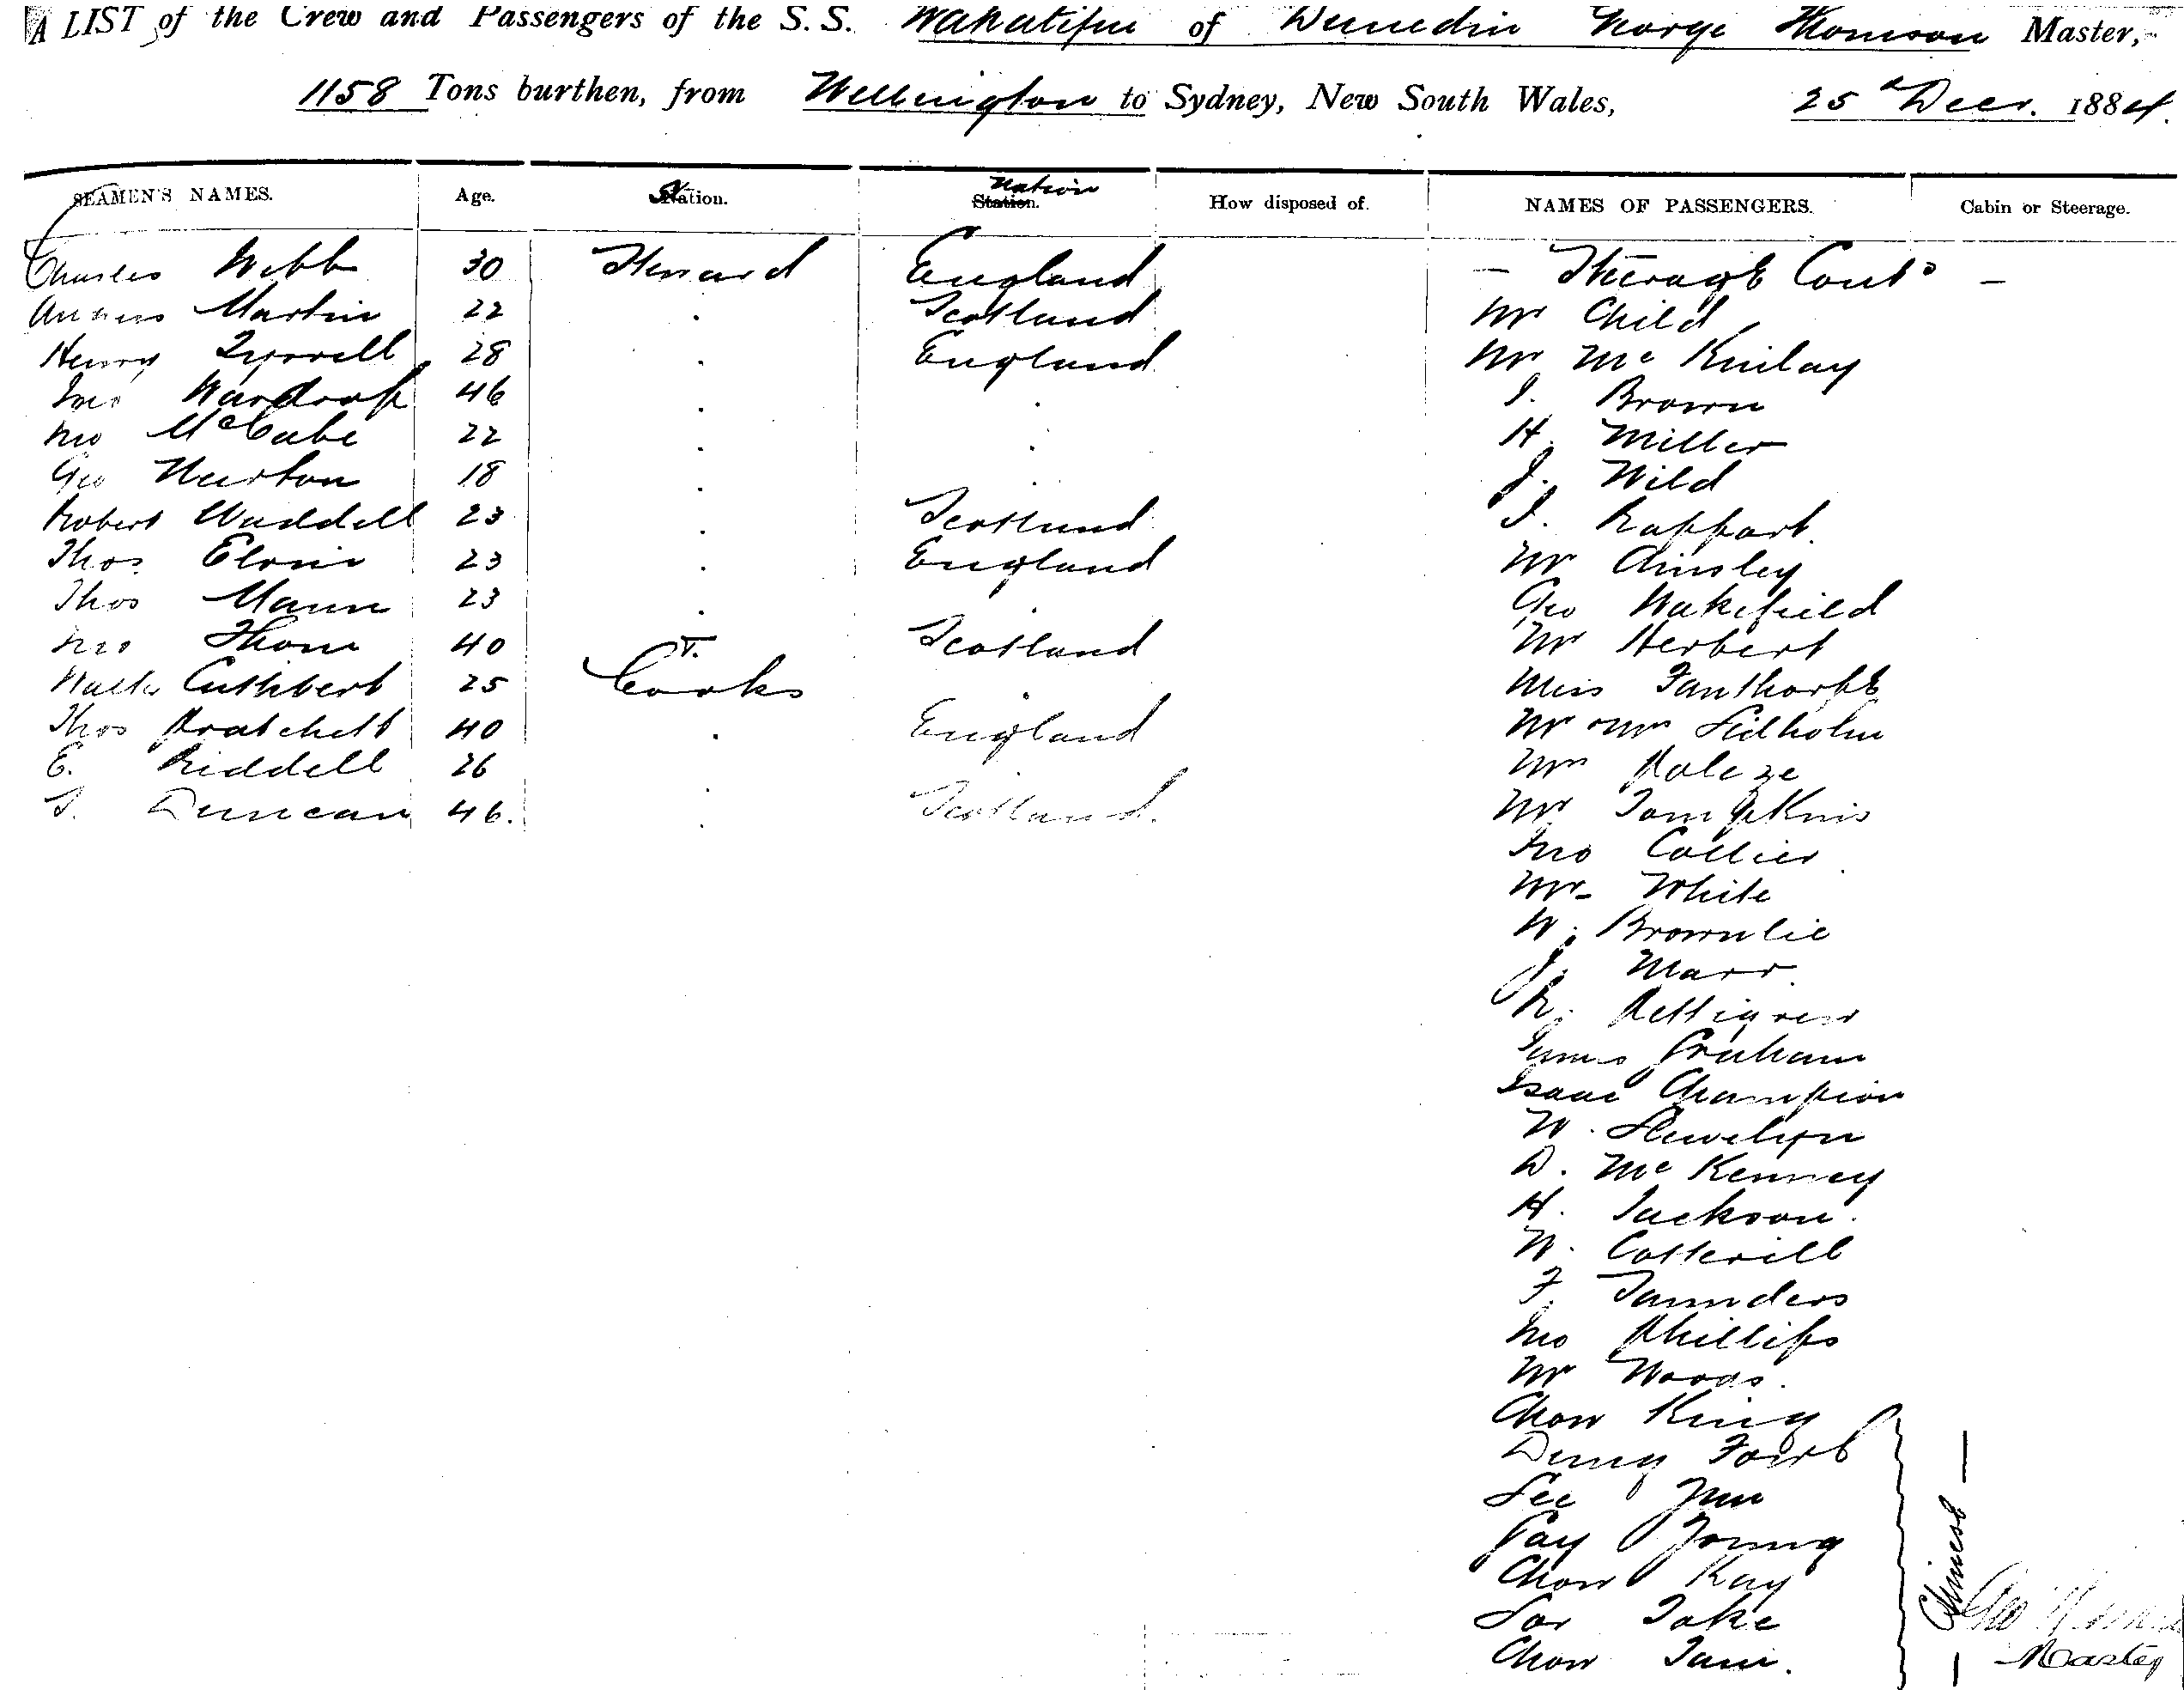 A LIST of the Crew and Passengers of the S.S. Wakatipu of Dunedin George Thomson Master,
1158 Tons burthen, from Wellington to Sydney, New South Wales, 25th Decr. 1884.
SEAMEN'S NAMES. Age. Station. Nation How disposed of. NAMES OF PASSENGERS. Cabin or Steerage.
Charles Webb 30 Steward England — Steerage Contd —
Martin 22 . Scotland Mr Child
Henry Tyrrell 28 . England Mr Mc Kinlay
Jno Wardrop 46 . . J. Brown
Jno McCabe 22 . . H. Miller
Geo Newton 18 . . J. Wild
Robert Waddell 23 . Scotland J. Rappart.
Thos. 23 . England Mr Ainsley
Thos Mann 23 . . Geo Wakefield
Jno Thom 40 Scotland Mr Herbert
Walter Cuthbert 25 Cooks . Miss Fanthorpe
Thos Pratchett 40 . England Mr & Mrs Lidholm
E. Riddell 26 . Mrs
J. Duncan 46. . Scotland. Mr Tompkins
Jno Collier
Mr White
W. Brownlie
J. Marr.
R. Pettigrew
James Graham
Isaac Champion
W. Llewelyn
D. Mc Kenney
H. Jackson.
W. Cotterill
F. Saunders
Jno Phillips
Mr Woods.
Chow King
Fowk
Lee Yum
Gay Young
Chow Kay
Sor Take
Chow Tam.
— Chinese —
Master